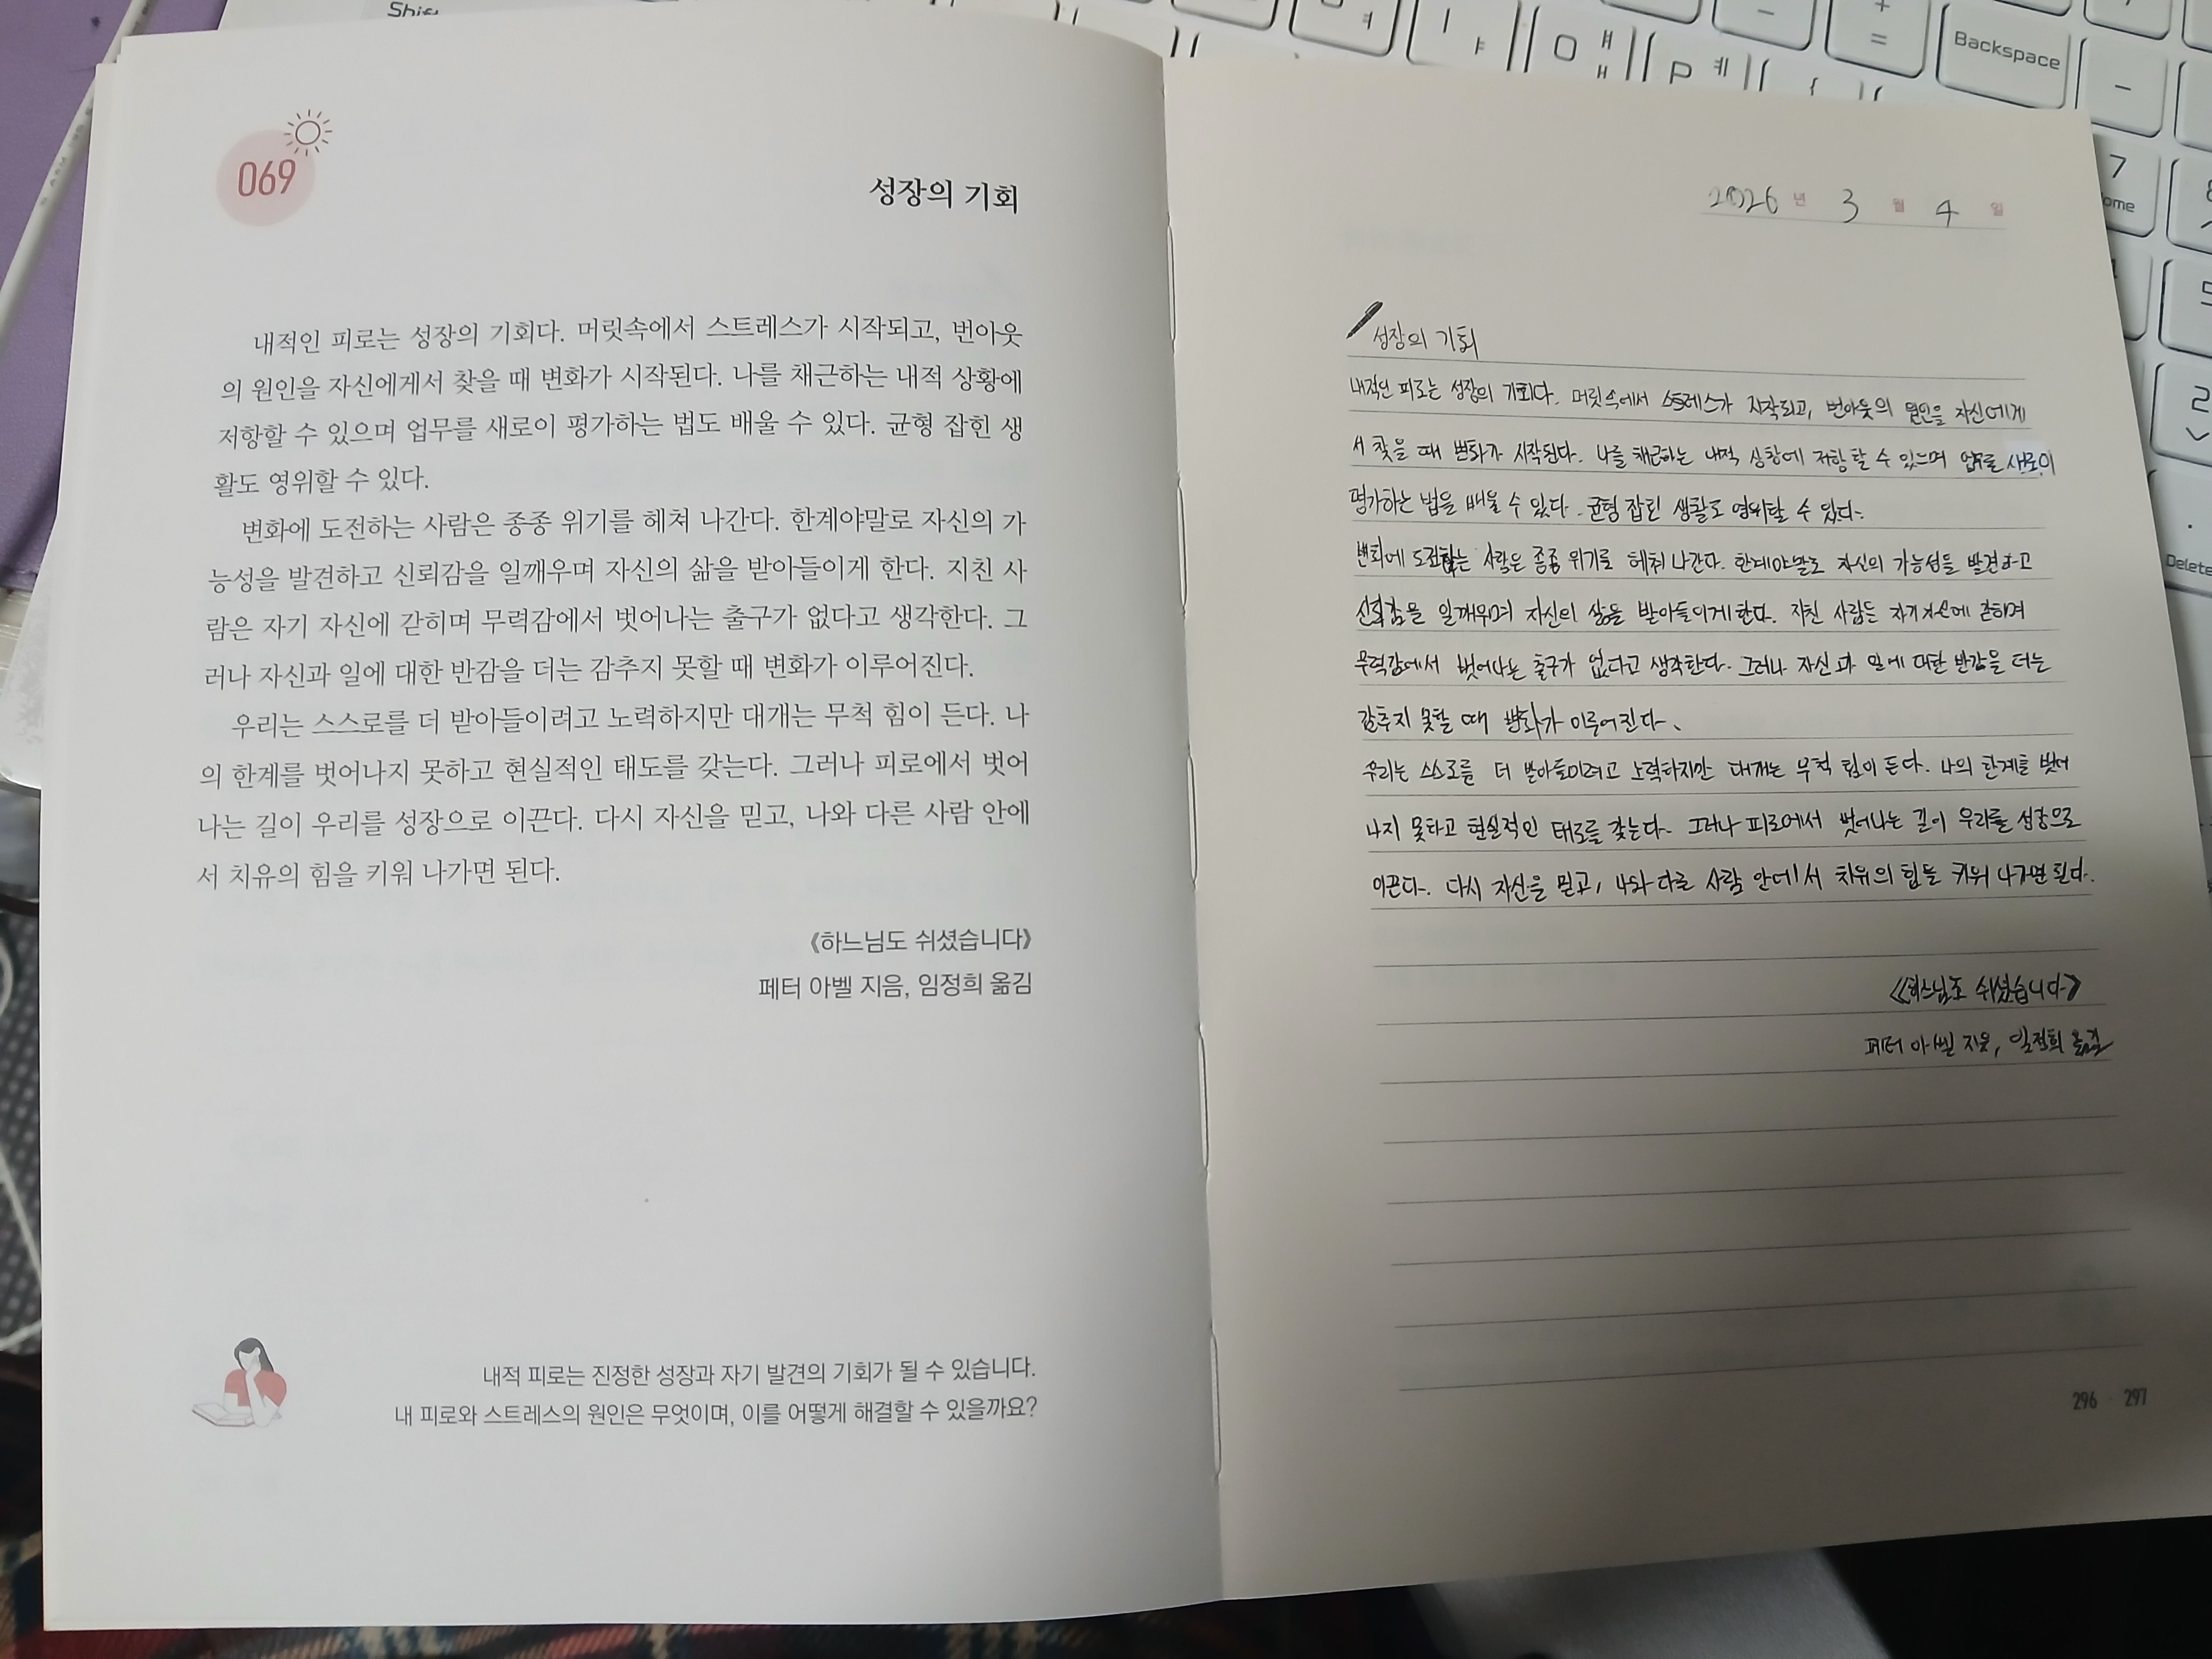 Shift
Backspace
+
=
7
Home
2
Delete
069
성장의 기회
내적인 피로는 성장의 기회다. 머릿속에서 스트레스가 시작되고, 번아웃
의 원인을 자신에게서 찾을 때 변화가 시작된다. 나를 채근하는 내적 상황에
저항할 수 있으며 업무를 새로이 평가하는 법도 배울 수 있다. 균형 잡힌 생
활도 영위할 수 있다.
변화에 도전하는 사람은 종종 위기를 헤쳐 나간다. 한계야말로 자신의 가
능성을 발견하고 신뢰감을 일깨우며 자신의 삶을 받아들이게 한다. 지친 사
람은 자기 자신에 갇히며 무력감에서 벗어나는 출구가 없다고 생각한다. 그
러나 자신과 일에 대한 반감을 더는 감추지 못할 때 변화가 이루어진다.
우리는 스스로를 더 받아들이려고 노력하지만 대개는 무척 힘이 든다. 나
의 한계를 벗어나지 못하고 현실적인 태도를 갖는다. 그러나 피로에서 벗어
나는 길이 우리를 성장으로 이끈다. 다시 자신을 믿고, 나와 다른 사람 안에
서 치유의 힘을 키워 나가면 된다.
《하느님도 쉬셨습니다》
페터 아벨 지음, 임정희 옮김
내적 피로는 진정한 성장과 자기 발견의 기회가 될 수 있습니다.
내 피로와 스트레스의 원인은 무엇이며, 이를 어떻게 해결할 수 있을까요?
2026년 3월 4일
성장의 기회
내적인 피로는 성장의 기회다. 머릿속에서 스트레스가 시작되고, 번아웃의 원인을 자신에게
서 찾을 때 변화가 시작된다. 나를 채근하는 내적 상황에 저항할 수 있으며 업무를 새로이
평가하는 법을 배울 수 있다. 균형 잡힌 생활도 영위할 수 있다.
변화에 도전하는 사람은 종종 위기를 헤쳐 나간다. 한계야말로 자신의 가능성을 발견하고
신뢰감을 일깨우며 자신의 삶을 받아들이게 한다. 지친 사람은 자기 자신에 갇히며
무력감에서 벗어나는 출구가 없다고 생각한다. 그러나 자신과 일에 대한 반감을 더는
감추지 못할 때 변화가 이루어진다.
우리는 스스로를 더 받아들이려고 노력하지만 대개는 무척 힘이 든다. 나의 한계를 벗어
나지 못하고 현실적인 태도를 갖는다. 그러나 피로에서 벗어나는 길이 우리를 성장으로
이끈다. 다시 자신을 믿고, 나와 다른 사람 안에서 치유의 힘을 키워 나가면 된다.
《하느님도 쉬셨습니다》
페터 아벨 지음, 임정희 옮김
296 · 297